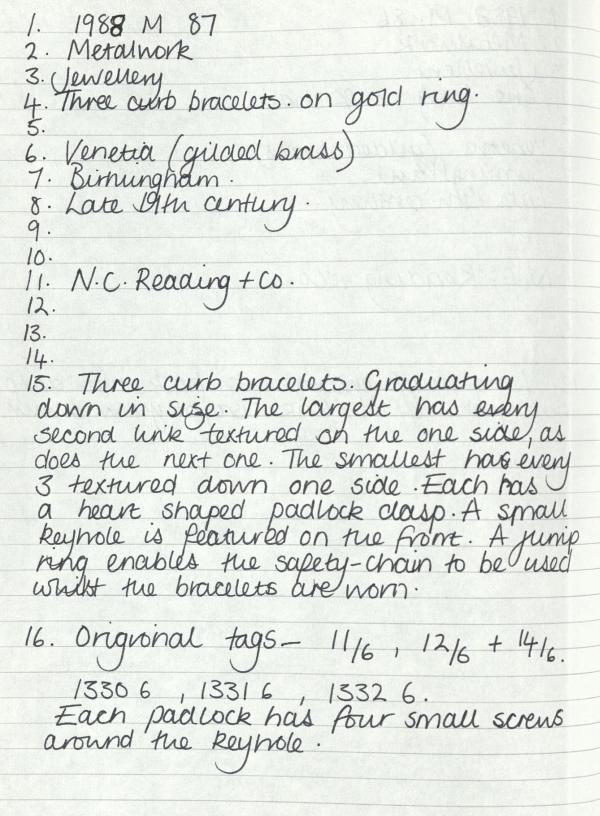 1. 1988 M 87
2. Metalwork
3. Jewellery
4. Three curb bracelets. on gold ring.
5.
6. Venetia (gilded brass)
7. Birmungham.
8. Late 19th century.
9.
10.
11. N.C. Reading + Co.
12.
13.
14.
15. Three curb bracelets. Graduating
down in size. The largest has every
second link textured on the one side, as
does the next one. The smallest has every
3 textured down one side. Each has
a heart shaped padlock clasp. A small
keyhole is featured on the front. A jump
ring enables the safety-chain to be used
whilst the bracelets are worn.
16. Origional tags— 11/6, 12/6 + 14/6.
1330 6, 1331 6, 1332 6.
Each padlock has four small screws
around the keyhole.